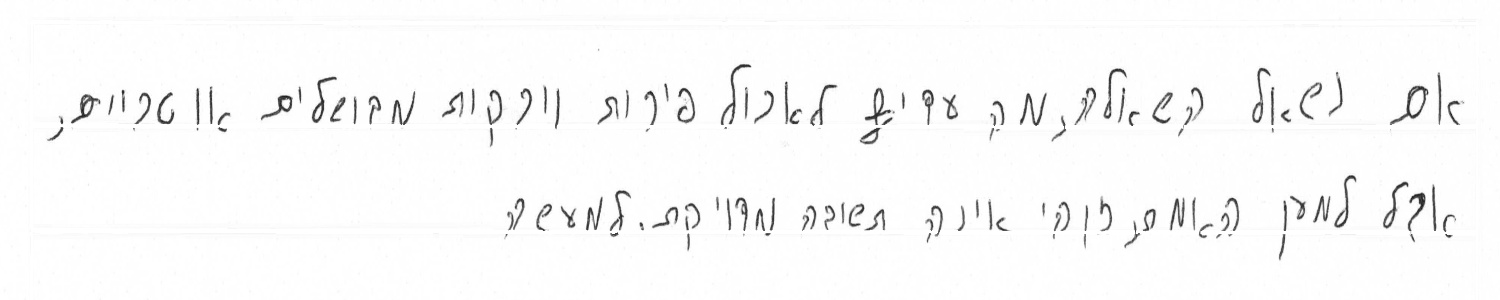 אם נשאל השאלה, מה עדיף לאכול פירות וירקות מבושלים או טריים,
אבל למען האמת, זוהי אינה תשובה מדוייקת. למעשה